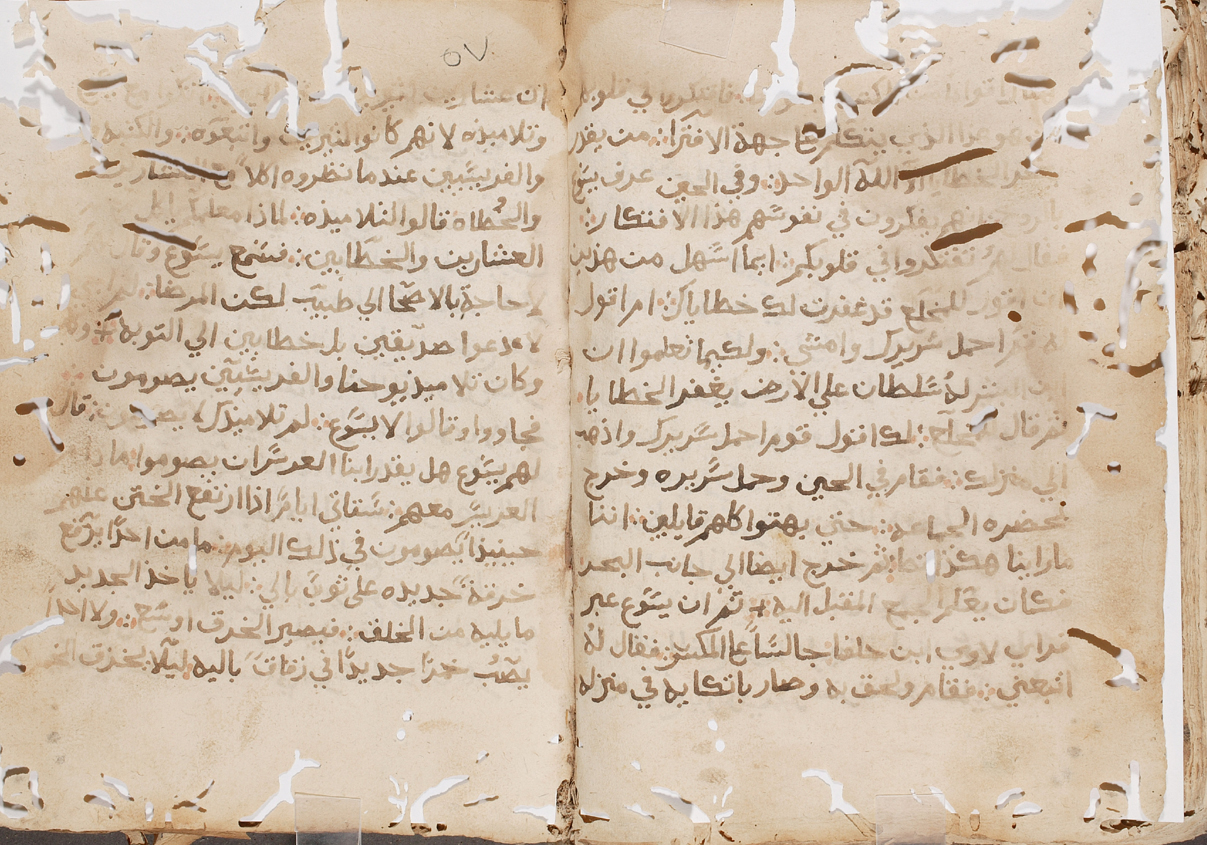 فاتكوا في قلوبهم
هو هذا الذي يتكلم جهة الافترا من يقدر
الخطايا الا الله الواحد وفي الحين عرف يسوع
انهم يفكرون في نفوسهم هذا الافتكار
فقال لهم تفتكروا في قلوبكم ايما اسهل من هذين
اقول للمخلع قد غفرت لك خطاياك ام اقول
احمل سريرك وامشي ولكيما تعلموا ان
ابن البشر له سلطان علي الارض يغفر الخطايا
ثم قال للمخلع لك اقول قوم احمل سريرك واذهب
الي منزلك فقام في الحين وحمل سريره وخرج
بحضره الجماعه حتي بهتوا كلهم قايلين اننا
ماراينا هكذا ثم خرج ايضا الي جانب البحر
فكان يعلم الجمع المقبل اليه ثم ان يسوع عبر
فراي لاوي ابن حلفا جالسا علي المكس فقال له
اتبعني فقام ولحق به وصار باتكايه في منزله
٥٧
ان عشارين
وتلاميذه لانهم كانوا كثيرين واتبعوه والكتبه
والفريسيين عندما نظروه اكلا مع العشارين
والخطاه قالوا لتلاميذه لماذا معلمكم ياكل
العشارين والخطايين فسمع يسوع وقال
لا حاجة بالاصحا الي طبيب لكن المرضا لم
لادعوا صديقين بل خطايين الي التوبة
وكان تلاميذ يوحنا والفريسيين يصومون
فجاووا وقالوا لايسوع لم تلاميذك لا يصومون قال
لهم يسوع هل يقدر ابنا العرس ان يصوموا مادام
العريس معهم ستاتي ايام اذا ارتفع الختن عنهم
حينيذ يصومون في ذلك اليوم ما من احدا يرقع
خرقة جديده على ثوب بالي ليلا ياخذ الجديد
ما يليه من الخلق فيصير الخرق اوسع ولا احدا
يصب خمرا جديدا في زقاق باليه ليلا يخرق